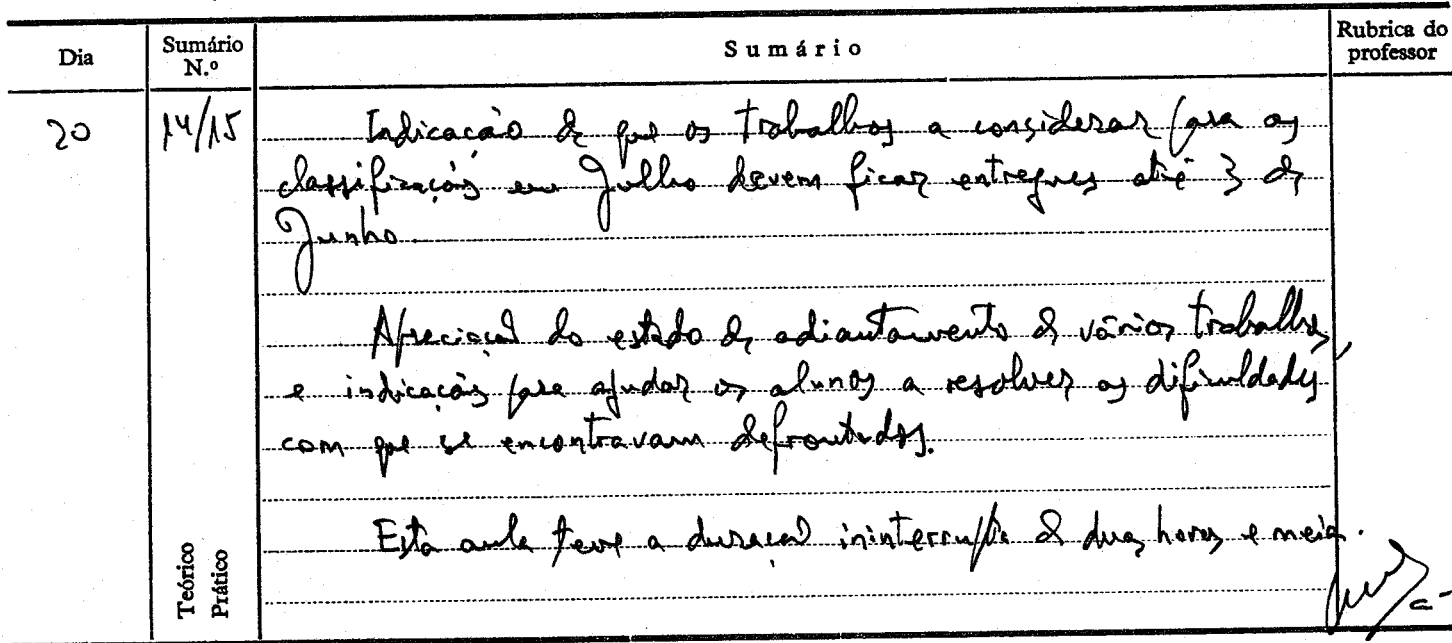 Dia
Sumário N.º
Sumário
Rubrica do professor
20
14/15
Indicação de que os trabalhos a considerar para as
classificações em Julho devem ficar entregues até 3 de
Junho.
Apreciação do estado de adiantamento de vários trabalhos,
e indicações para ajudar os alunos a resolver as dificuldades
com que se encontravam defrontados.
Esta aula teve a duração ininterrupta de duas horas e meia.
Teórico
Prático